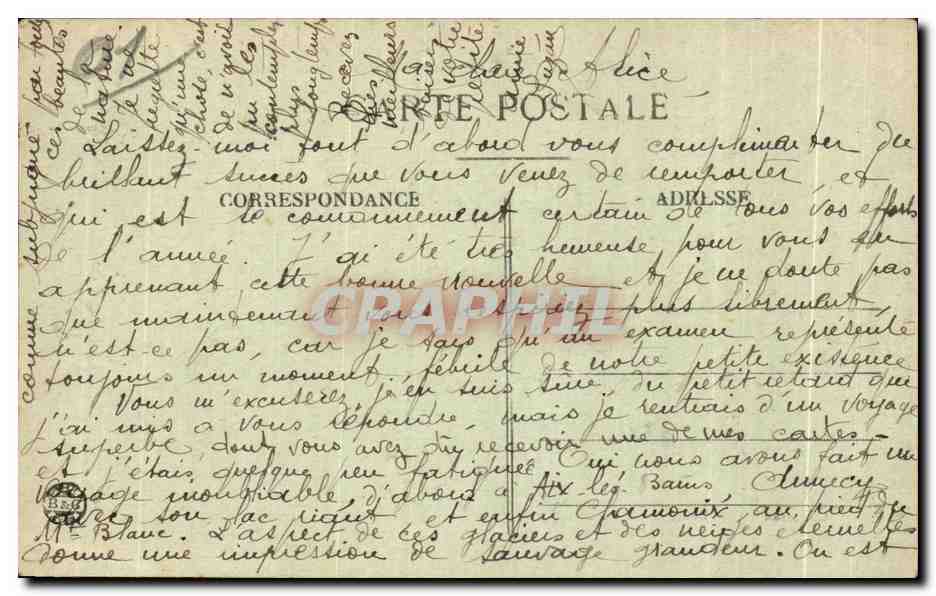 Ma chère Alice
CARTE POSTALE
Laissez-moi tout d'abord vous complimenter du
brillant succès que vous venez de remporter et
CORRESPONDANCE ADRESSE
qui est le couronnement certain de tous vos efforts
de l'année. J'ai été très heureuse pour vous en
apprenant cette bonne nouvelle et je ne doute pas
que maintenant vous respiriez plus librement,
n'est-ce pas, car je sais qu'un examen représente
toujours un moment fébrile de notre petite existence
Vous m'excuserez j'en suis sûre, du petit retard que
j'ai mis à vous répondre, mais je rentrais d'un voyage
superbe, dont vous avez dû recevoir une de mes cartes -
et j'étais quelque peu fatiguée. Oui nous avons fait un
voyage inoubliable, d'abord à Aix-les-Bains Annecy
avec son lac riant et enfin Chamonix au pied du
Mt Blanc. L'aspect de ces glaciers et des neiges éternelles
donne une impression de sauvage grandeur. On est
comme subjugué par
ces beautés
de la
nature.
Je ne
regrette
qu'une
chose c'est
de n'avoir
pu les
contempler
plus
longtemps
Recevez
mes
meilleurs
baisers
votre
petite
amie
B&G
91
CPAPHIL